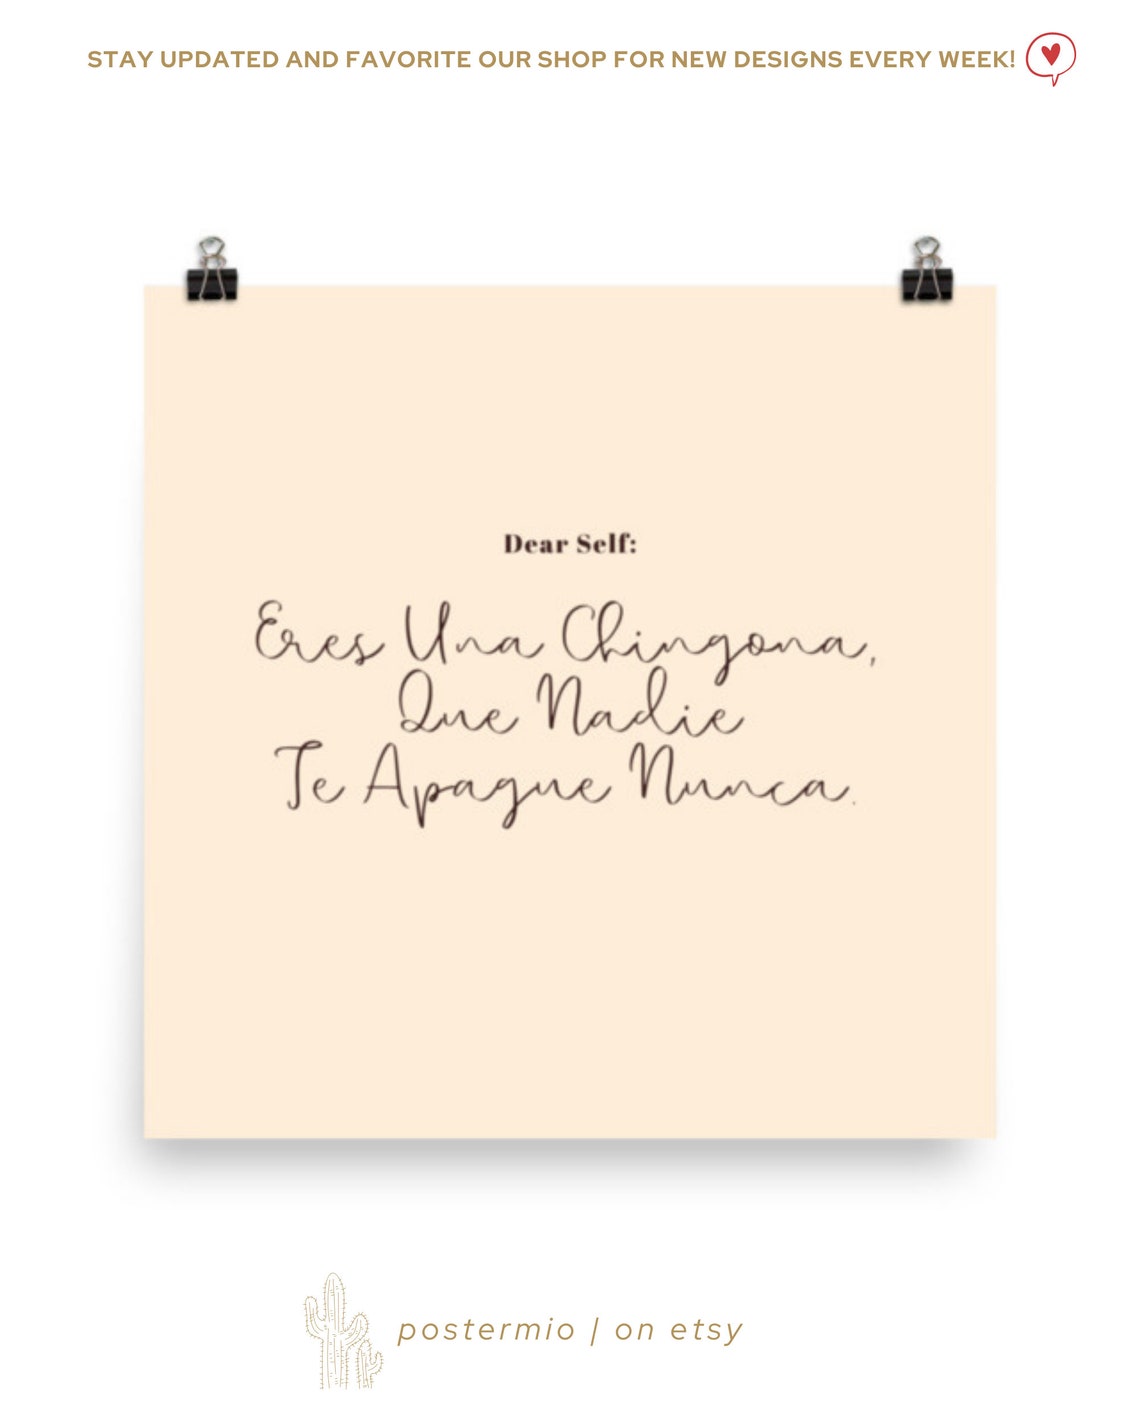 STAY UPDATED AND FAVORITE OUR SHOP FOR NEW DESIGNS EVERY WEEK!
Dear Self:
Eres Una Chingona,
Que Nadie
Te Apague Nunca.
postermio | on etsy